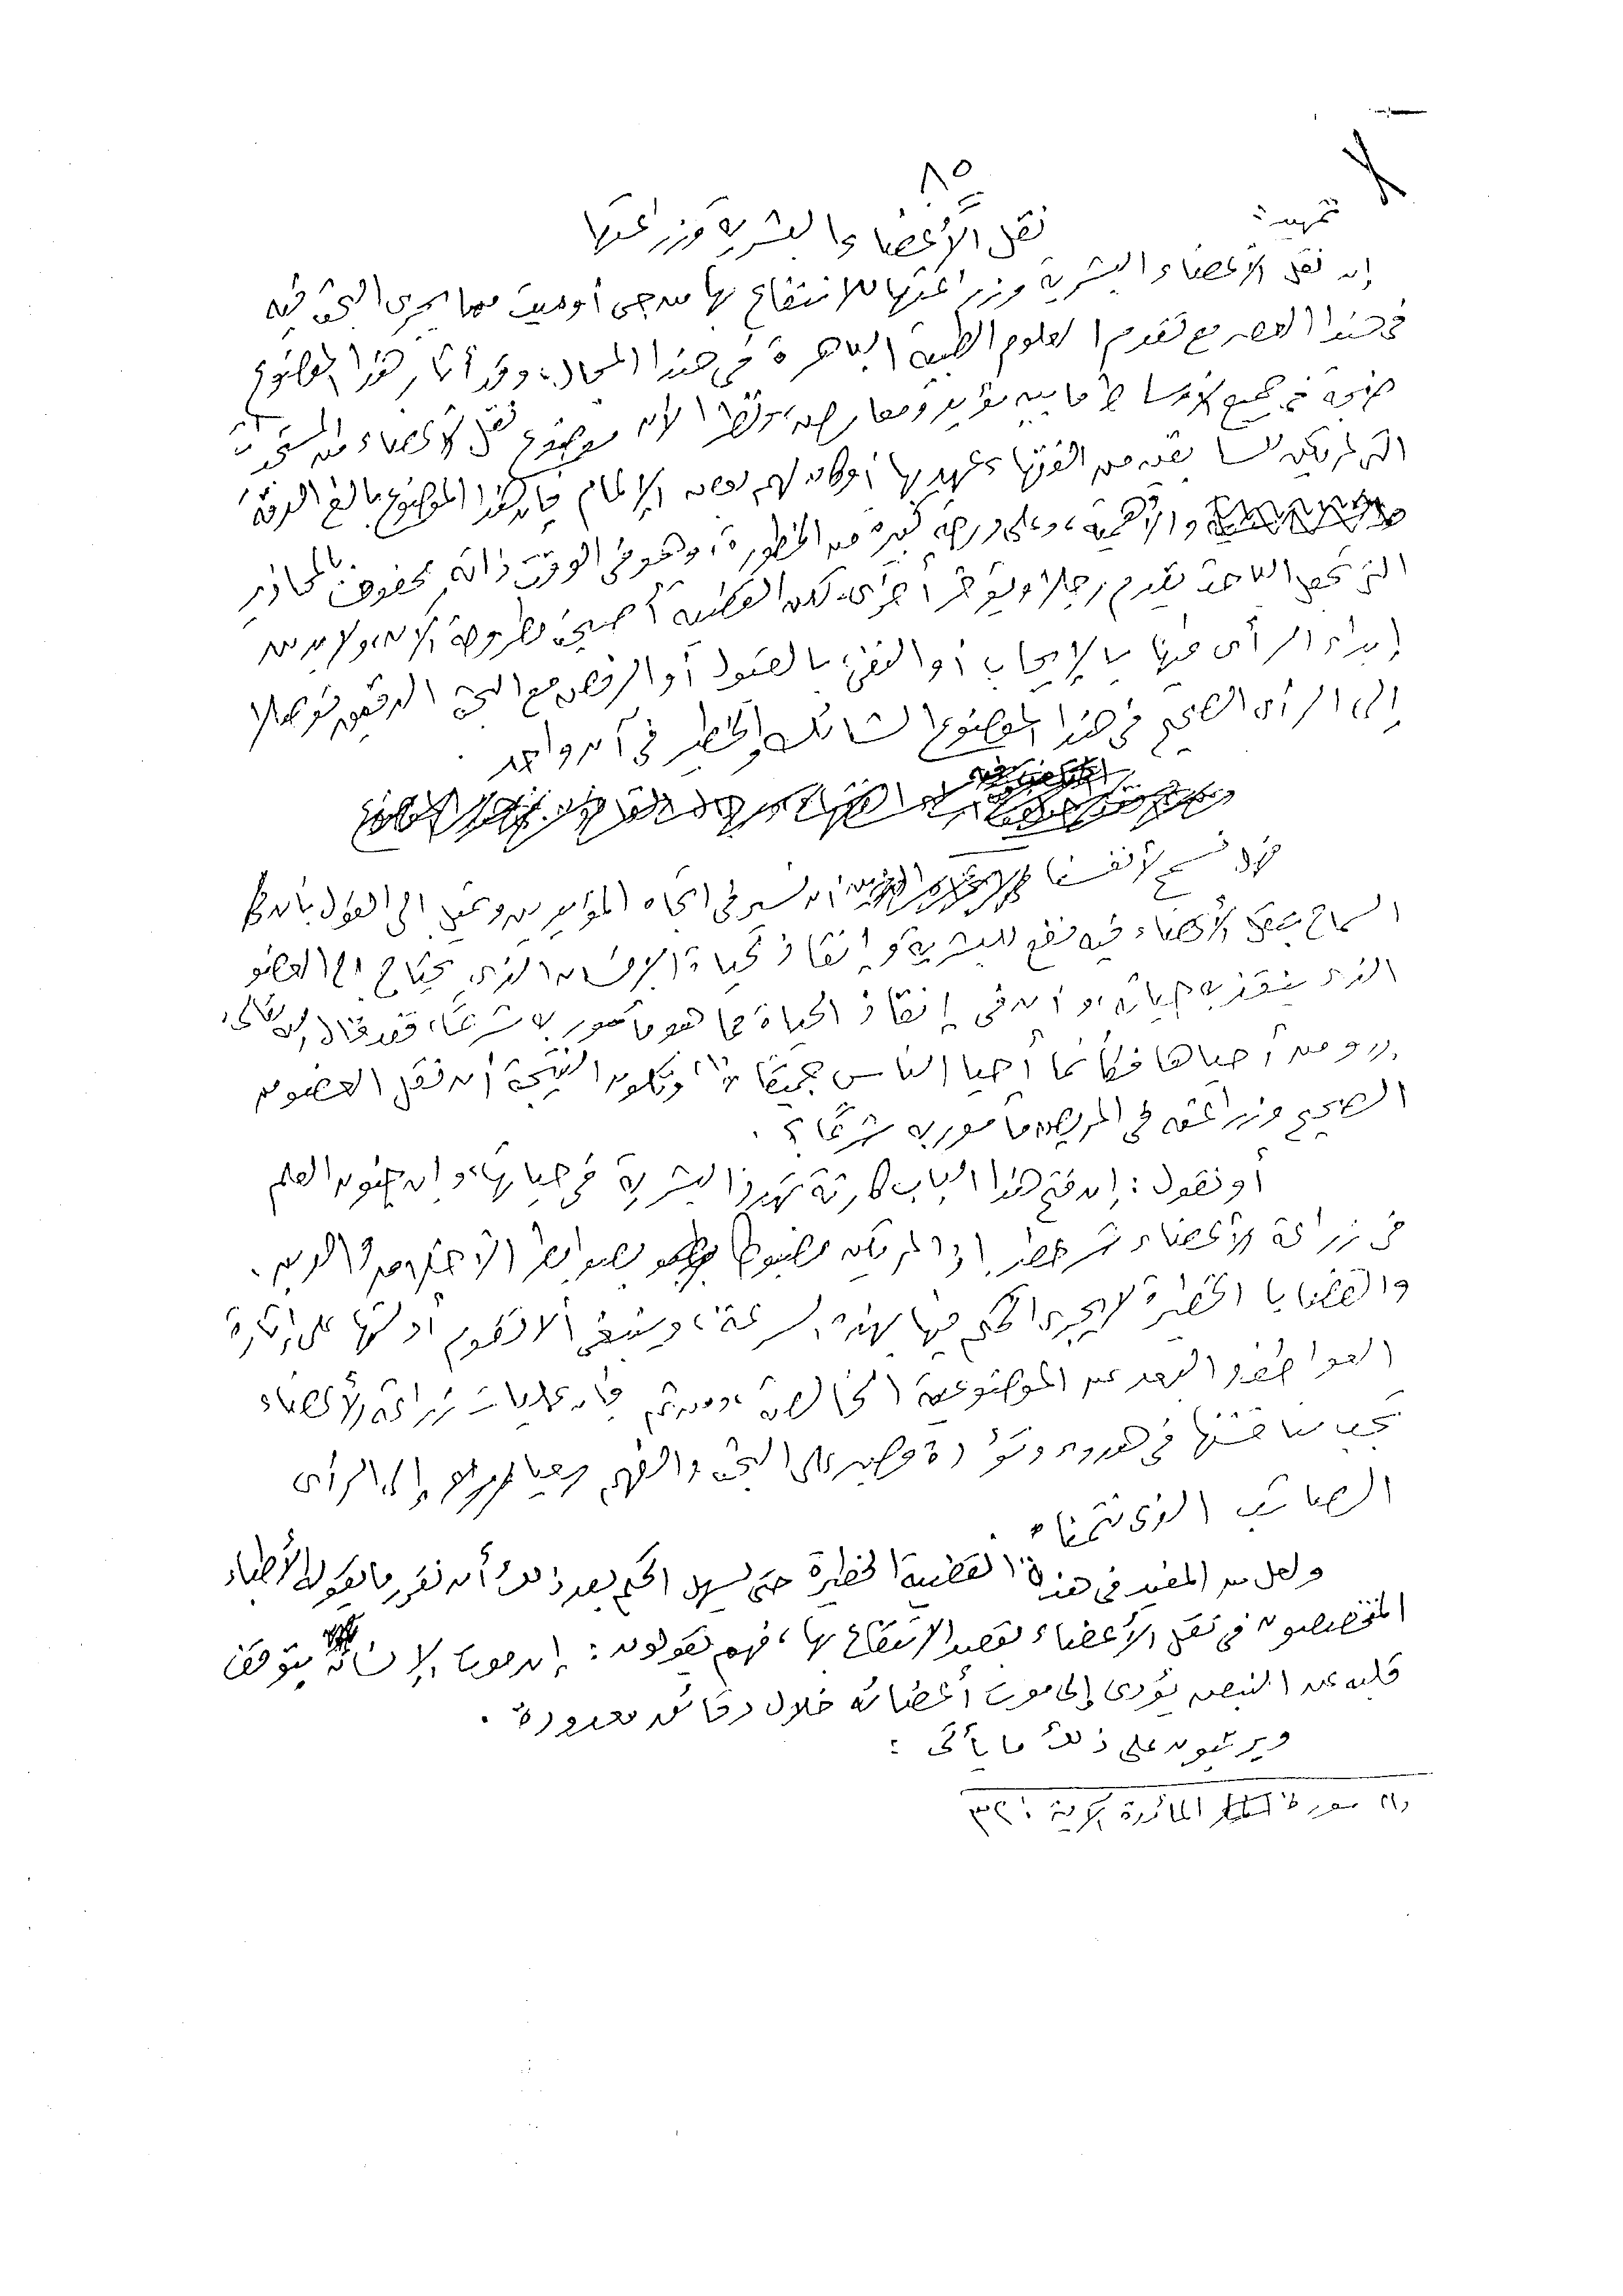 ٨٥
نقل الأعضاء البشرية وزراعتها
تمهيد:
إن نقل الأعضاء البشرية وزراعتها للانتفاع بها من حى أو ميت مما يجرى البحث فيه
فى هذا العصر مع تقدم العلوم الطبية الباهرة فى هذا المجال، وقد أثار هذا الموضوع
ضجة فى جميع الأوساط ما بين مؤيد ومعارض، ونظرا لأن موضوع نقل الأعضاء من المستجدات
التى لم يكن لسابقين من الفقهاء عهد بها أو كان لهم بعض الإلمام فإن هذا الموضوع بالغ الدقة
والأهمية، وعلى درجة كبيرة من الخطورة، وهو فى الوقت ذاته محفوف بالمحاذير
التى تجعل الباحث يقدم رجلا ويؤخر أخرى، لكن القضية أصبحت مطروحة الآن، ولابد من
إبداء الرأى فيها بالإيجاب أو النفى، بالقبول أو الرفض مع البحث الدقيق توصلا
إلى الرأى الصحيح فى هذا الموضوع الشائك والخطير فى آن واحد .
فهل نسمح لأنفسنا أن نسير فى اتجاه المؤيدين ونميل إلى القول بأن فى
السماح بنقل الأعضاء فيه نفع للبشرية وإنقاذ لحياة الإنسان الذى يحتاج إلى العضو
الذى ينقذ به حياته، وأن فى إنقاذ الحياة مما هو مأمور به شرعًا، فقد قال الله تعالى:
"ومن أحياها فكأنما أحيا الناس جميعًا"(١) وتكون النتيجة أن نقل العضو من
الصحيح وزراعته فى المريض مأمور به شرعًا؟ .
أو نقول: إن فتح هذا الباب كارثة تهدد البشرية فى حياتها، وإن جنون العلم
فى زراعة الأعضاء شر خطير إذا لم يكن مضبوطا بضوابط الأخلاق والدين .
والقضايا الخطيرة لا يجرى الحكم فيها بهذه السرعة، وينبغى ألا تقوم أدلتها على إثارة
العواطف والبعد عن الموضوعية الخالصة، ومن ثم فإن عمليات زراعة الأعضاء
يجب مناقشتها فى هدوء وتؤدة وصبر على البحث والفهم إلى الرأى
الصائب الذى نتمناه .
ولعل من المفيد فى هذه القضية الخطيرة حتى يسهل الحكم بعد ذلك أن نقرر ما يقوله الأطباء
المتخصصون فى نقل الأعضاء بقصد الانتفاع بها، فهم يقولون: إن موت الإنسان بتوقف
قلبه عن النبض يؤدى إلى موت أعضائه خلال دقائق معدودة .
ويرتبون على ذلك ما يأتى :
(١) سورة المائدة الآية : ٣٢